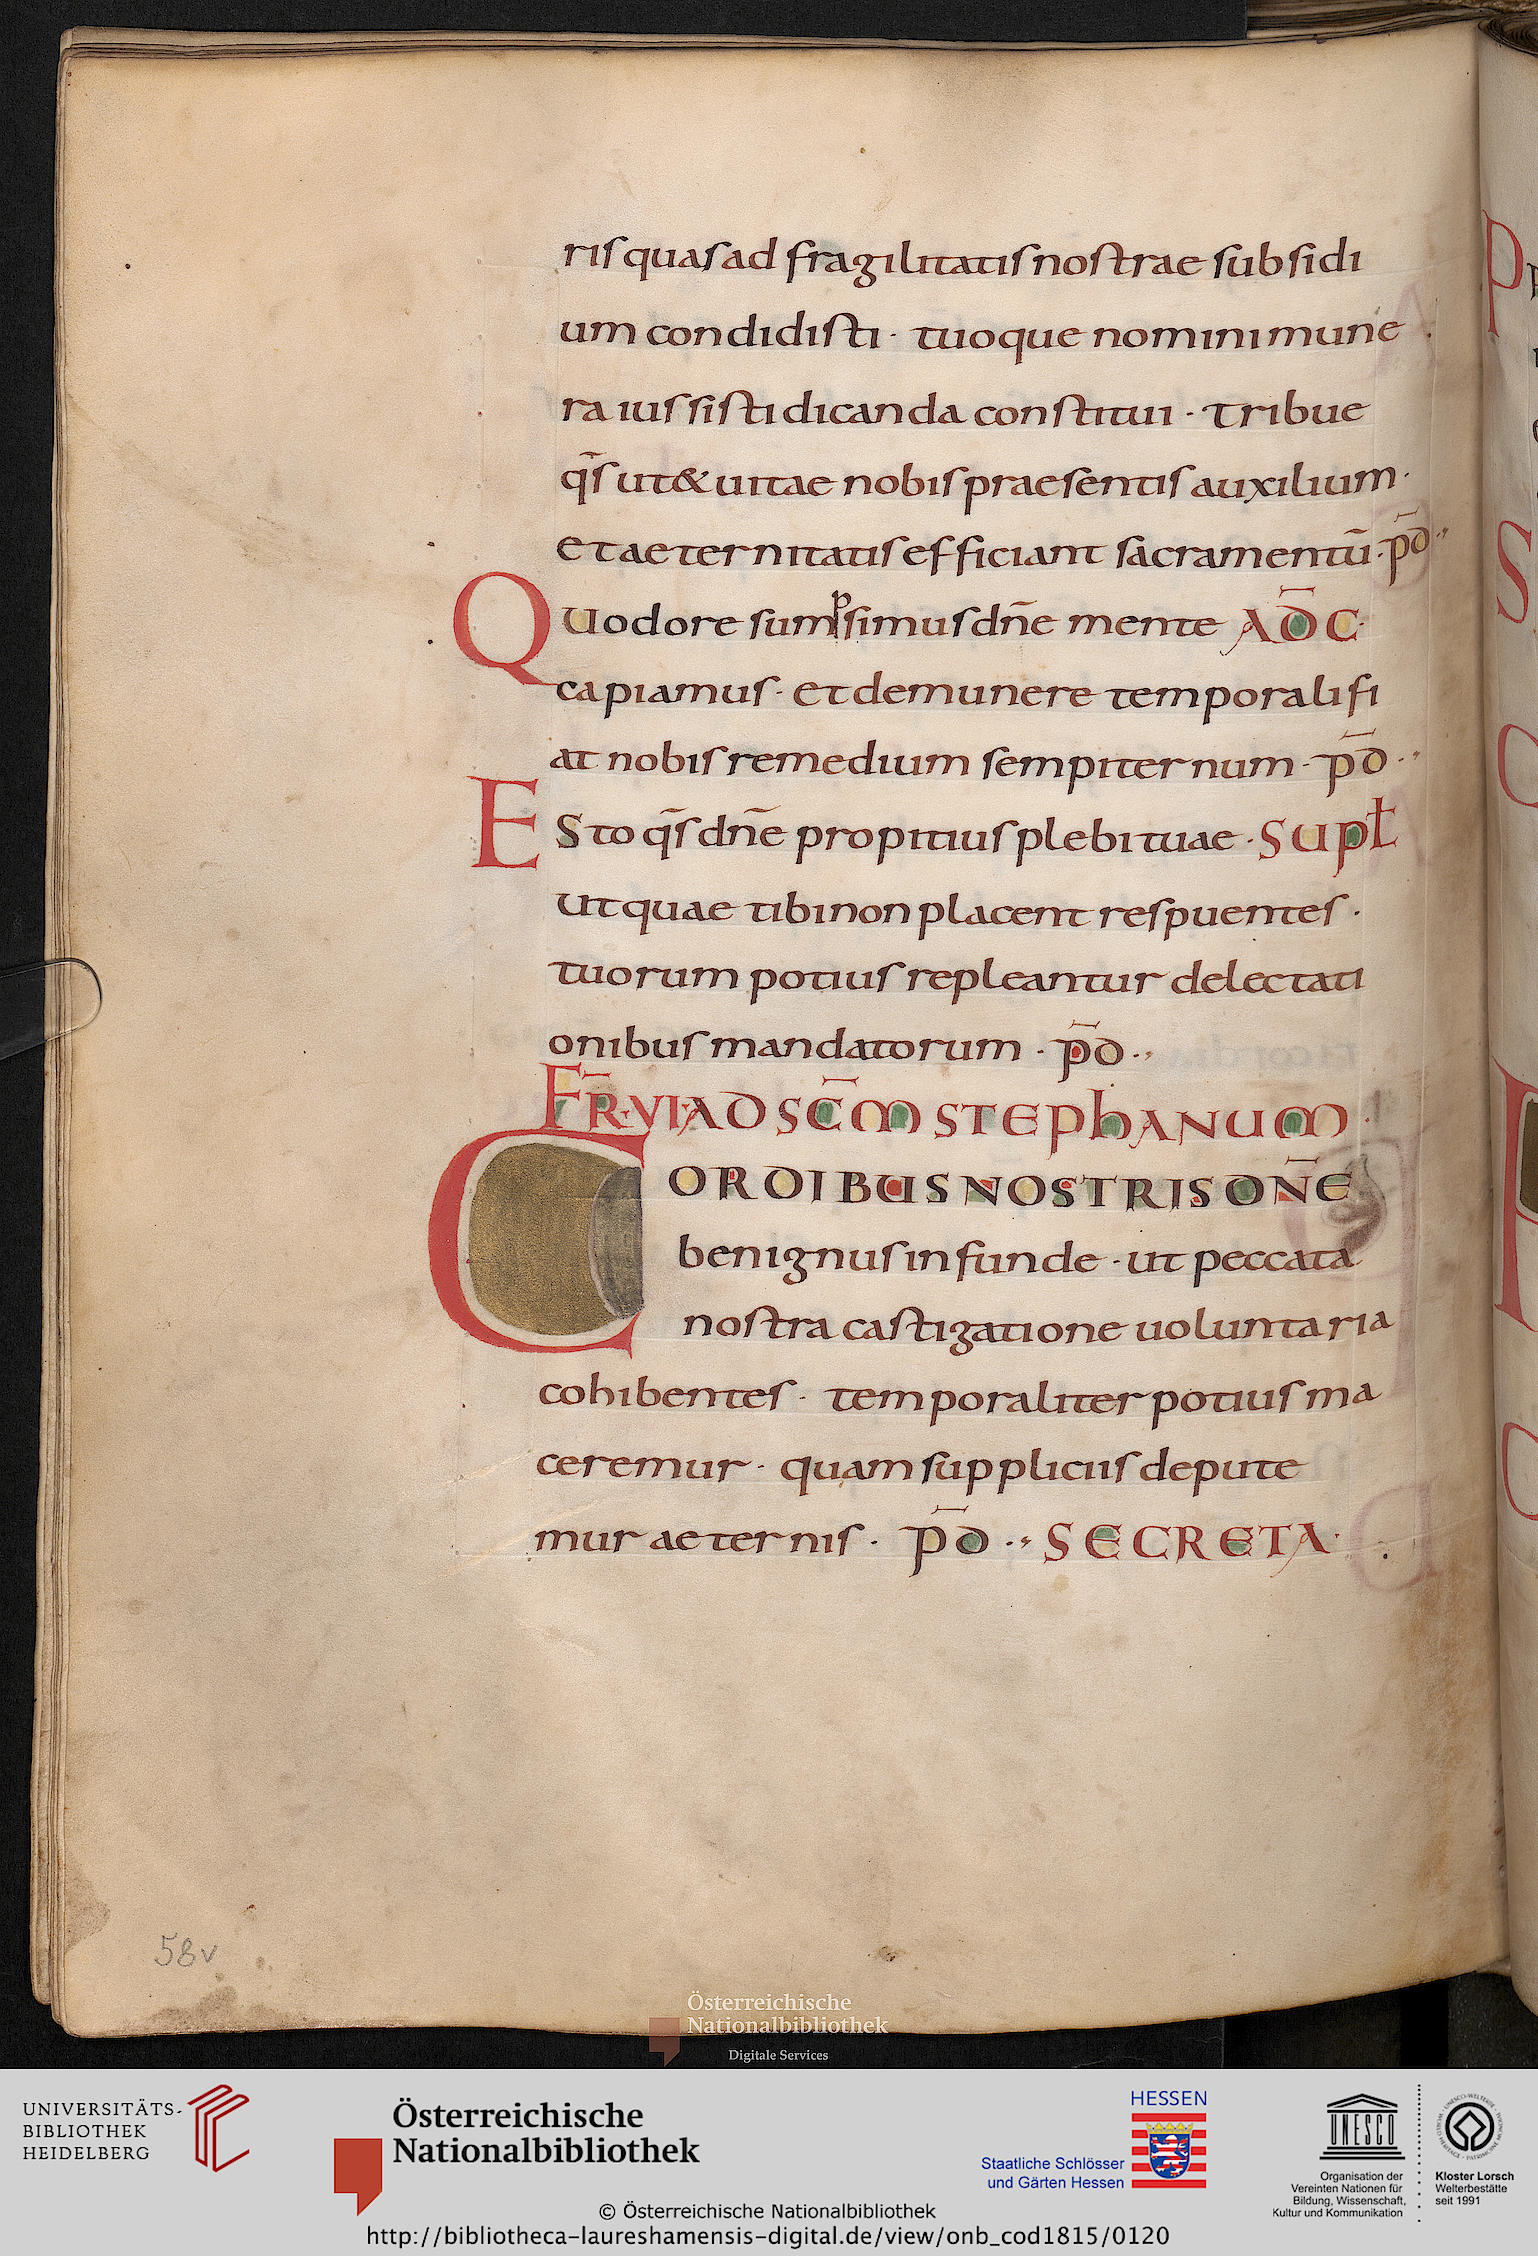 ris quas ad fragilitatis nostrae subsidi
um condidisti · tuoque nomini mune
ra iussisti dicanda constitui · tribue
qs̄ ut & uitae nobis praesentis auxilium ·
et aeternitatis efficiant sacramentū · p̄d
Quod ore sumpsimus dn̄e mente AD̄C
capiamus · et de munere temporali fi
at nobis remedium sempiternum · p̄d
Esto qs̄ dn̄e propitius plebi tuae · SUPł
ut quae tibi non placent respuentes ·
tuorum potius repleantur delectati
onibus mandatorum · p̄d
FR̄ · VI · AD SC̄M STEPHANUM ·
CORDIBUS NOSTRIS DN̄E
benignus infunde · ut peccata
nostra castigatione uoluntaria
cohibentes · temporaliter potius ma
ceremur · quam suppliciis depute
mur aeternis · p̄d · SECRETA ·
58v
Österreichische
Nationalbibliothek
Digitale Services
UNIVERSITÄTS-
BIBLIOTHEK
HEIDELBERG
Österreichische
Nationalbibliothek
HESSEN
Staatliche Schlösser
und Gärten Hessen
UNESCO
Organisation der
Vereinten Nationen für
Bildung, Wissenschaft,
Kultur und Kommunikation
Kloster Lorsch
Welterbestätte
seit 1991
© Österreichische Nationalbibliothek
http://bibliotheca-laureshamensis-digital.de/view/onb_cod1815/0120